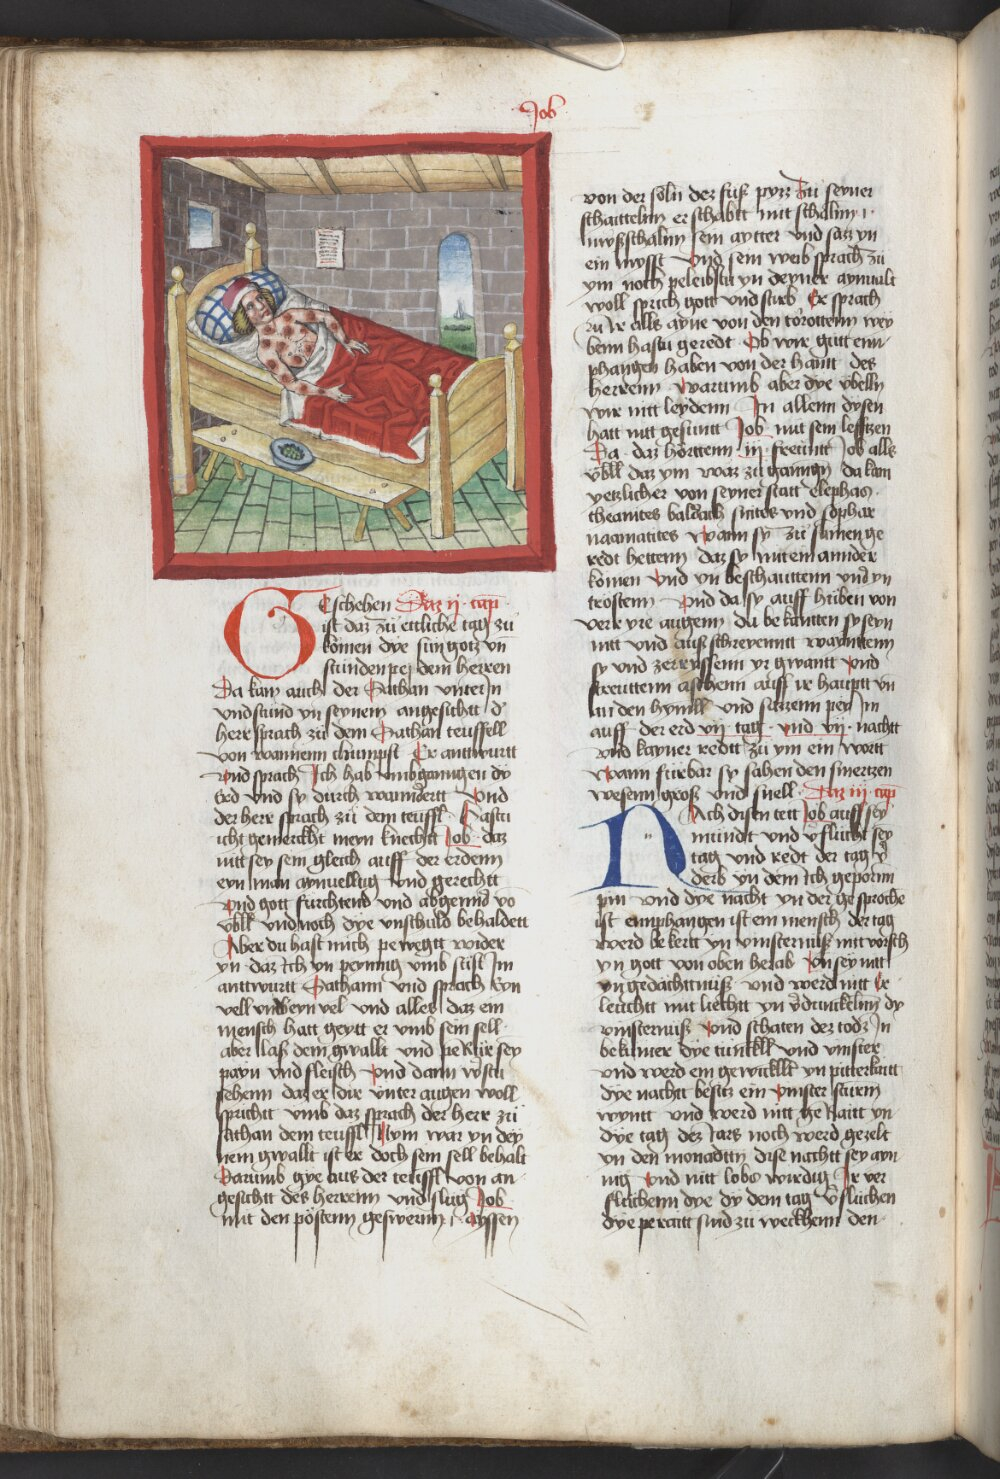 Job
Geschehen Daz ij cap
ist daz zu ettliche tag zu
komen dye sün gotz vn
stünden pej dem herren
Da kam auch der Sathan unter In
vnd stund vn seynem angesichtt d'
herr sprach zu dem Sathan teuffell
von wannenn chumpst Er anttwurtt
vnd sprach Ich hab umbganngen dy
Erd vnd sy durch wanndertt vnd
der herr sprach zu dem teuffl Hastu
icht gemerckht meyn knechtt Job daz
nitt sey sein gleich auff der erdenn
eyn man aynuelltig vnd gerechtt
vnd gott furchtend vnd abgennd vo
vbll vnd noch dye unschuld behaldett
Aber du hast mich pewegtt wider
yn daz Ich yn peynnig vmb süst Im
anttwurtt Sathann vnd sprach Eyn
vell vmb eyn vel vnd alles daz ein
mensch hatt geytt er vmb sein sell
aber laß dein gwallt vnd perür sey
payn vnd fleisch vnd dann wirstu
sehenn daz er dir vnter augen woll
sprichtt vmb daz sprach der herr zü
sathan dem teuffl Nym war yn dey
nem gwallt ist er doch sein sell behalt
Darumb gye aus der teuffl von an
gesichtt des herrenn vnd slug Job
mit den pöstenn geswernn i ayssen
von der söln der füß pyzz zu seyner
schaitteln er schabtt mit schalnn i
mystschalnn sein aytter vnd saz yn
ein mysst vnd sein weib sprach zu
ym noch peleibstu yn deyner aynualt
woll sprich gott vnd stirb Er sprach
zu ir alls ayne von den törottenn wey
benn hastu geredt Ob wir gutt enn
phangen haben von der hantt des
herrenn warumb aber dye vbelln
wir nitt leydenn In allenn dysen
hatt nitt gesüntt Job mit sein lefftzen
Da daz hörttenn iij freüntt Job alls
vbll daz ym waz zu ganngen da kam
yetzlicher von seyner statt elephas
themites baldach suites vnd sophar
naamatites wann sy zu samen ge
redt hettenn daz sy mit ein annder
komen vnd yn beschauttenn vnd yn
trostenn vnd da sy auff huben von
verr yre augenn da bekantten sy seyn
nitt vnd auß schreyennt wayntenn
sy vnd zerryssenn yr gwantt vnd
streuttenn aschenn auff ir hauptt vn
an den hymll vnd sitzenn pey Im
auff der erd vij tag vnd vij nachtt
vnd kayner redtt zu ym ein wortt
wann fürbar sy sahen den smertzen
wesenn groß vnd snell Daz iij cap
Nach disen tett Job auff sey
mündt vnd vflucht sey
tag vnd redt der tag v
derb yn dem Ich geporn
pin vnd dye nacht yn der gesproche
ist emphangen ist ein mensch der tag
werd bekertt yn vinsternuß nit vorsch
yn gott von oben herab vn sey nitt
yn gedachttnuß vnd werd nitt Er
leuchtt mit liechtt yn vdunckelnn dy
vinsternuß vnd schaten dez todz In
bekumer dye tunckll vnd vinster
vnd werd ein gewickllt yn pitterkaitt
dye nachtt besitz ein vinster sturm
wyntt vnd werd nitt geraitt yn
dye tag dez Iars noch werd gezelt
yn den monadttn dise nachtt sey ayn
nig vnd nitt lobs wirdig Ir ver
fluchenn dye dy dem tag vfluchen
dye peraitt sind zu weckhenn den